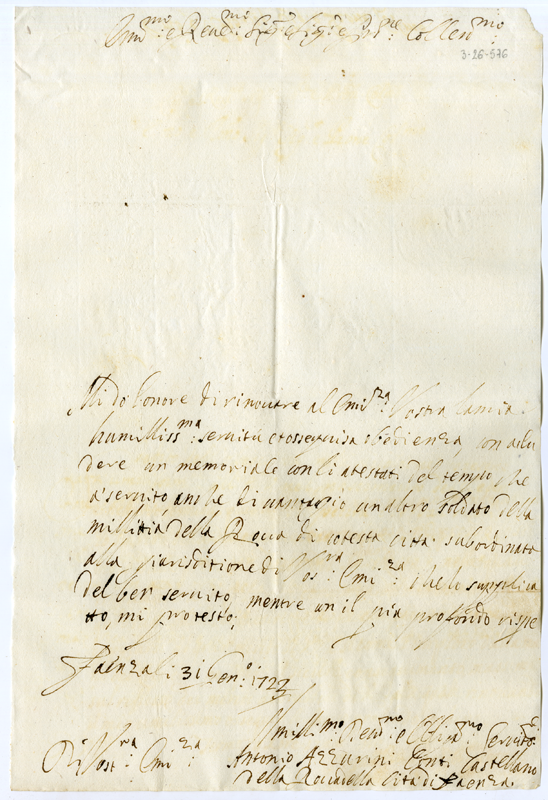 Em.mo e Reu.mo Sig.r Sig.r e P.ne Collen.mo
3-26-576
Mi dò l'onore di rinouare al Emi.za Vostra la mia
humiliss.ma seruitù et ossequiosa obedienza, con aclu
dere un memoriale con li atestati del tempo che
à seruito anche di uantagio un altro soldato della
militia della Roca di cotesta città subordinata
alla jurisditione di Vos.ra Emi.za che lo supplica
del ben seruito, mentre con il più profondo rispe
tto, mi protesto,
Faenza li 31 Gen.o 1723
Di Vost.ra Emi.za
Vmillimo Deu.mo e Oblig.mo Seruito.e
Antonio Azzurini Cont. Castellano
della Rocca della Città di Faenza.